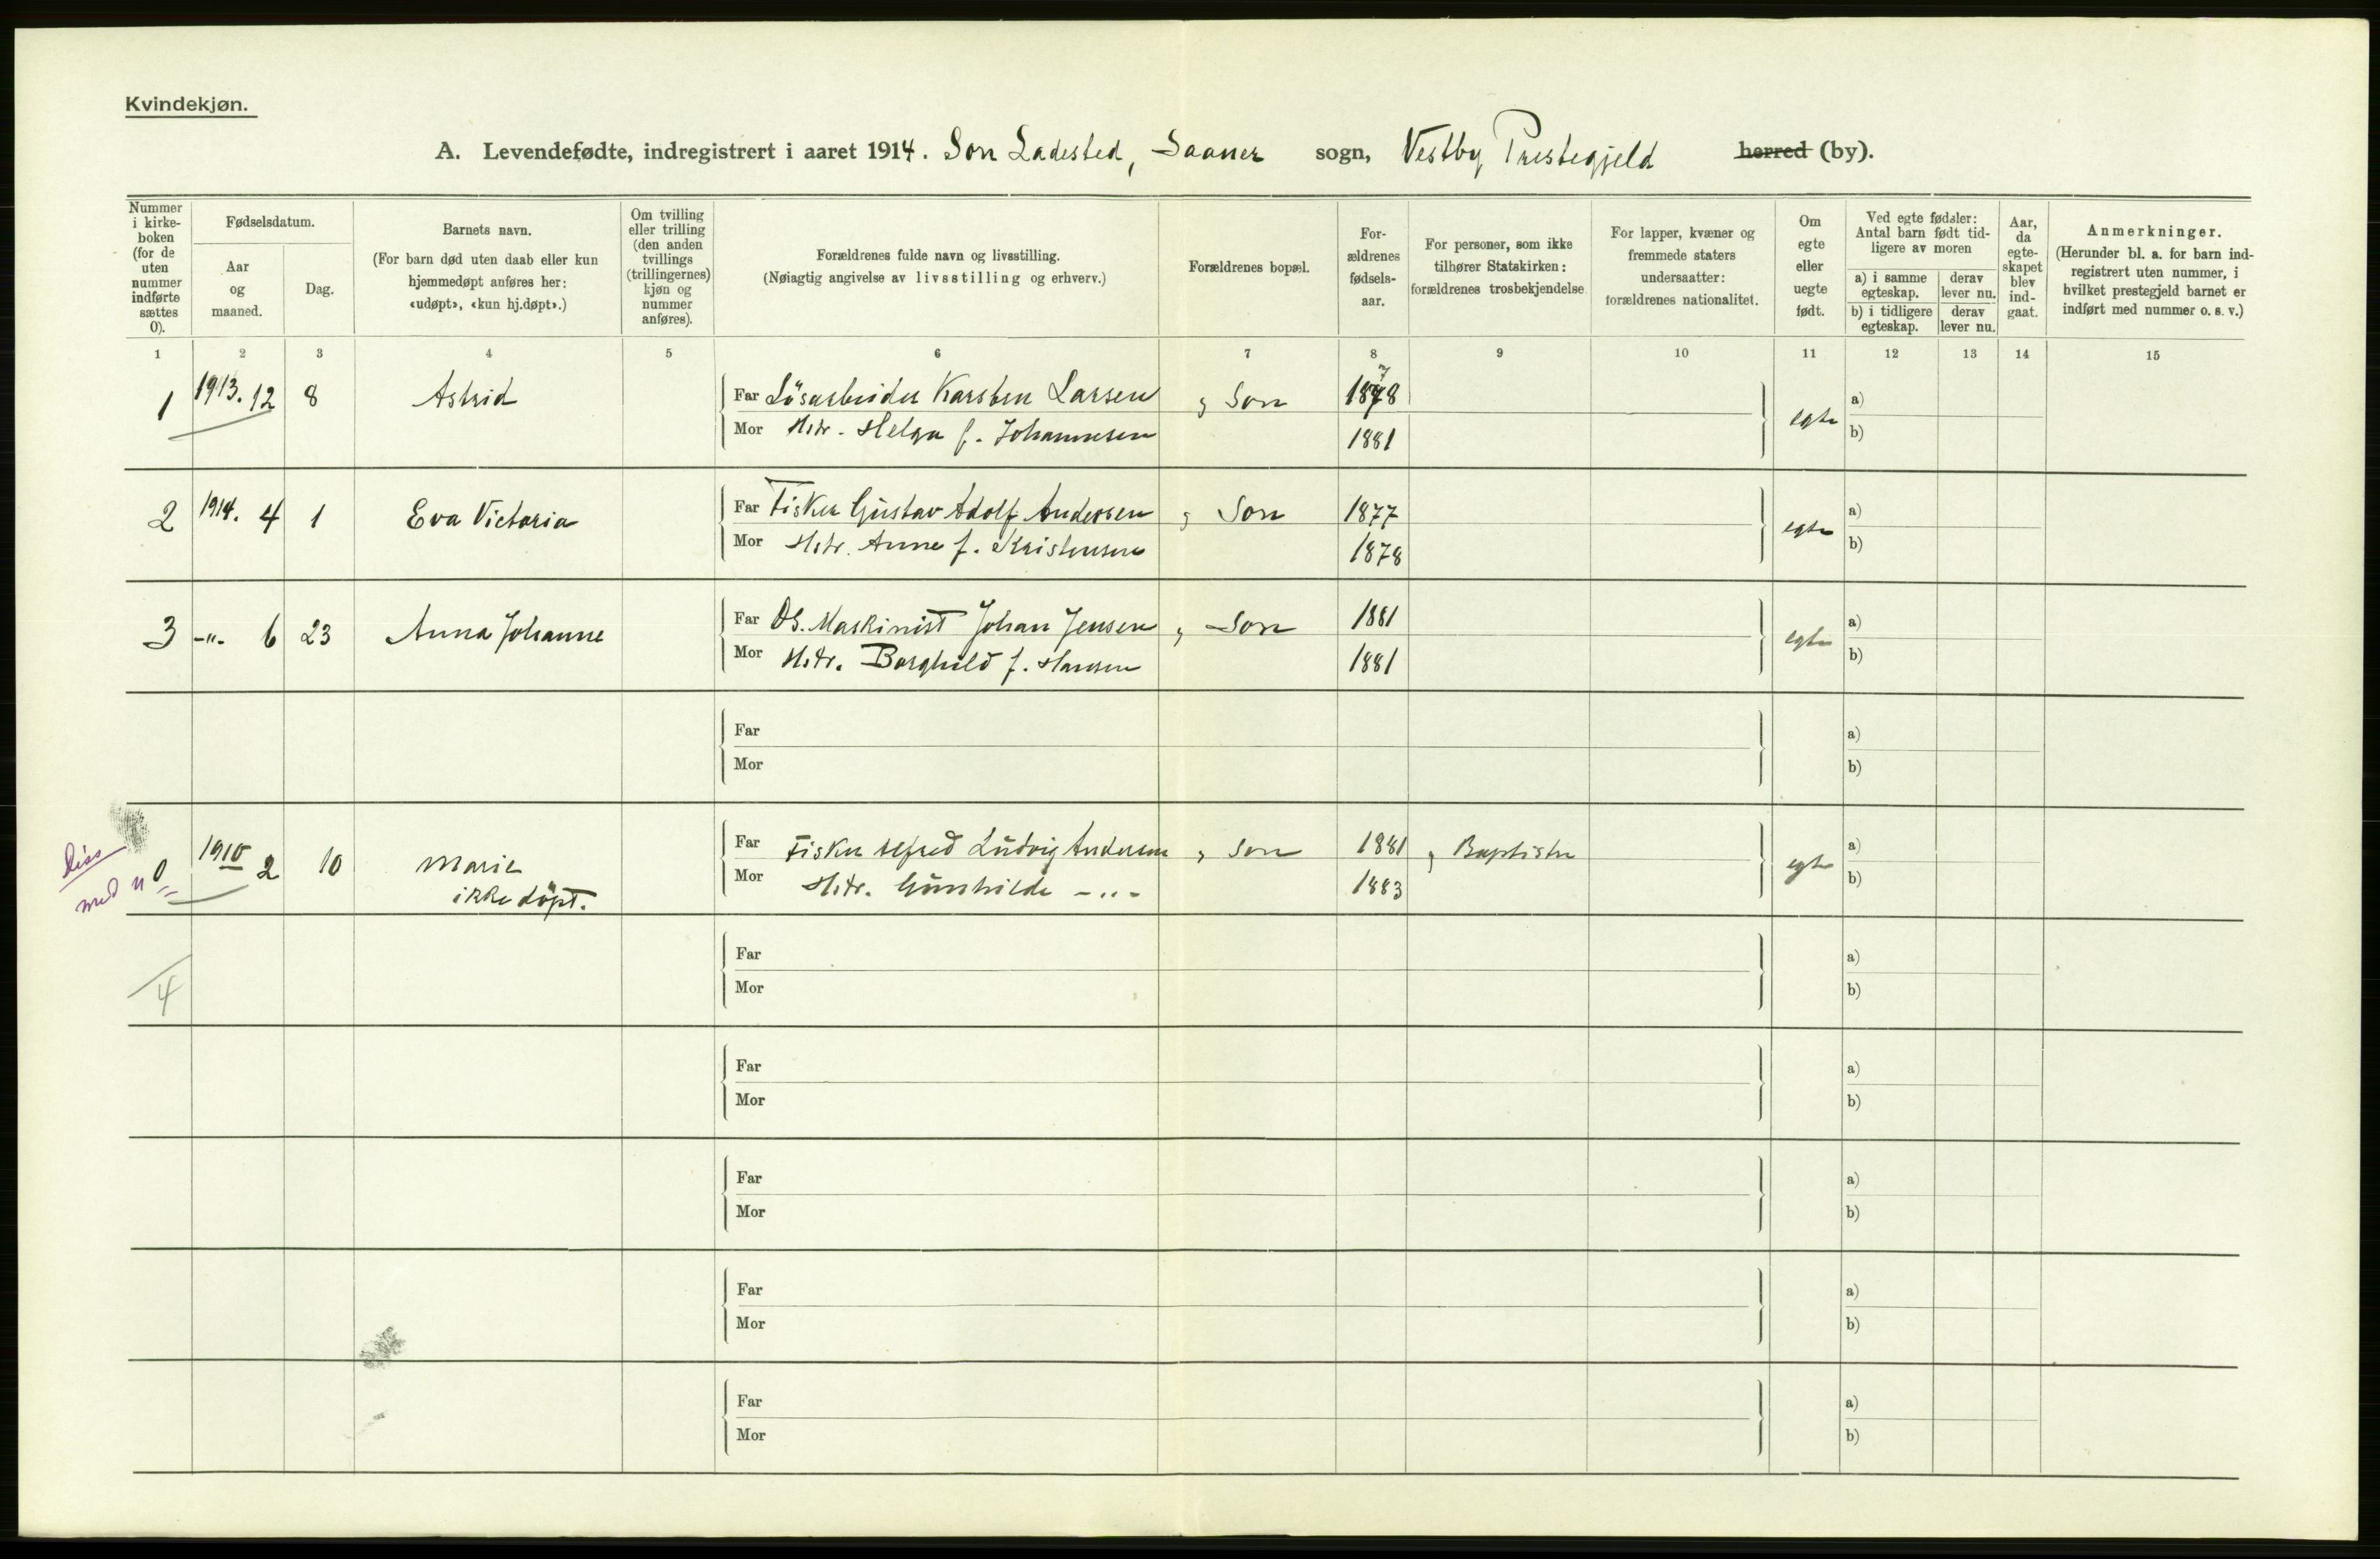 Kvindekjøn.
A. Levendefødte, indregistrert i aaret 1914. Son Ladested, Saaner sogn, Vestby Prestegjeld herred (by).
Nummer i kirke-boken (for de uten nummer indførte sættes 0).
Fødselsdatum.
Aar og maaned.
Dag.
Barnets navn.
(For barn død uten daab eller kun hjemmedøpt anføres her: «udøpt», «kun hj.døpt».)
Om tvilling eller trilling (den anden tvillings (trillingernes) kjøn og nummer anføres).
Forældrenes fulde navn og livsstilling.
(Nøiagtig angivelse av livsstilling og erhverv.)
Forældrenes bopæl.
For-ældrenes fødsels-aar.
For personer, som ikke tilhører Statskirken: forældrenes trosbekjendelse
For lapper, kvæner og fremmede staters undersaatter: forældrenes nationalitet.
Om egte eller uegte født.
Ved egte fødsler: Antal barn født tid-ligere av moren
a) i samme egteskap.
derav lever nu.
b) i tidligere egteskap.
derav lever nu.
Aar, da egte-skapet blev ind-gaat.
Anmerkninger.
(Herunder bl. a. for barn ind-registrert uten nummer, i hvilket prestegjeld barnet er indført med nummer o. s. v.)
1 2 3 4 5 6 7 8 9 10 11 12 13 14 15
1 1913. 12 8 Astrid Far Lösarbeider Karsten Larsen , Son 1878 egte a)
Mor Hstr. Helga f. Johannesen 1881 b)
2 1914. 4 1 Eva Victoria Far Fisker Gustav Adolf Andersen , Son 1877 egte a)
Mor Hstr. Anne f. Kristensen 1878 b)
3 -"- 6 23 Anna Johanne Far DS. Maskinist Johan Jensen , Son 1881 egte a)
Mor Hstr. Borghild f. Hansen 1881 b)
Far a)
Mor b)
Diss
med n 0 1910 2 10 Marie Far Fisker Alfred Ludvig Andersen , Son 1881 , Baptister egte a)
ikke döpt. Mor Hstr. Gunhilde -"- 1883 b)
4
Far a)
Mor b)
Far a)
Mor b)
Far a)
Mor b)
Far a)
Mor b)
Far a)
Mor b)